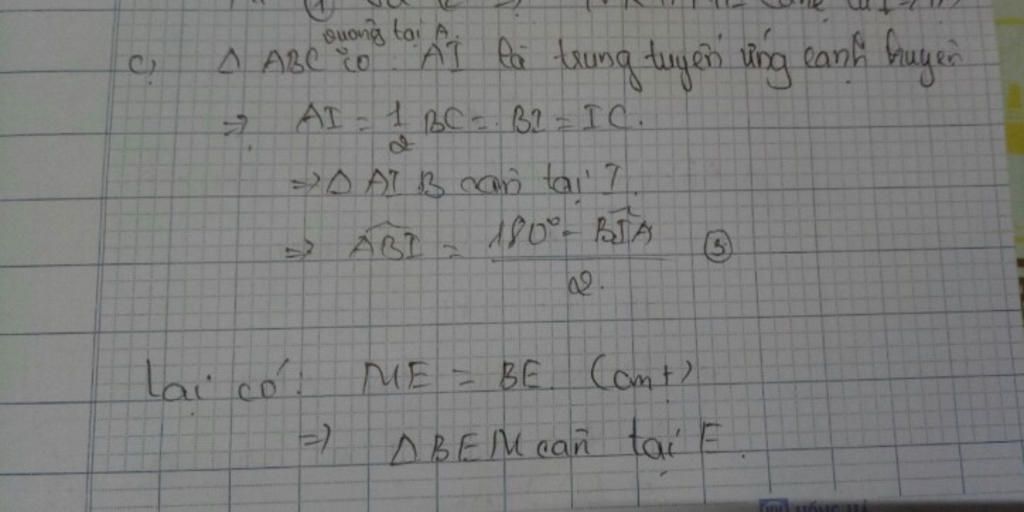 vuông tại A.
c) Δ ABC có AI là trung tuyến ứng cạnh huyền
⇒ AI = 1/2 BC = BI = IC.
⇒ Δ AIB cân tại I.
⇒ ABI = 180° - BIA / 2. ③
Lại có: ME = BE (cmt)
⇒ Δ BEM cân tại E.